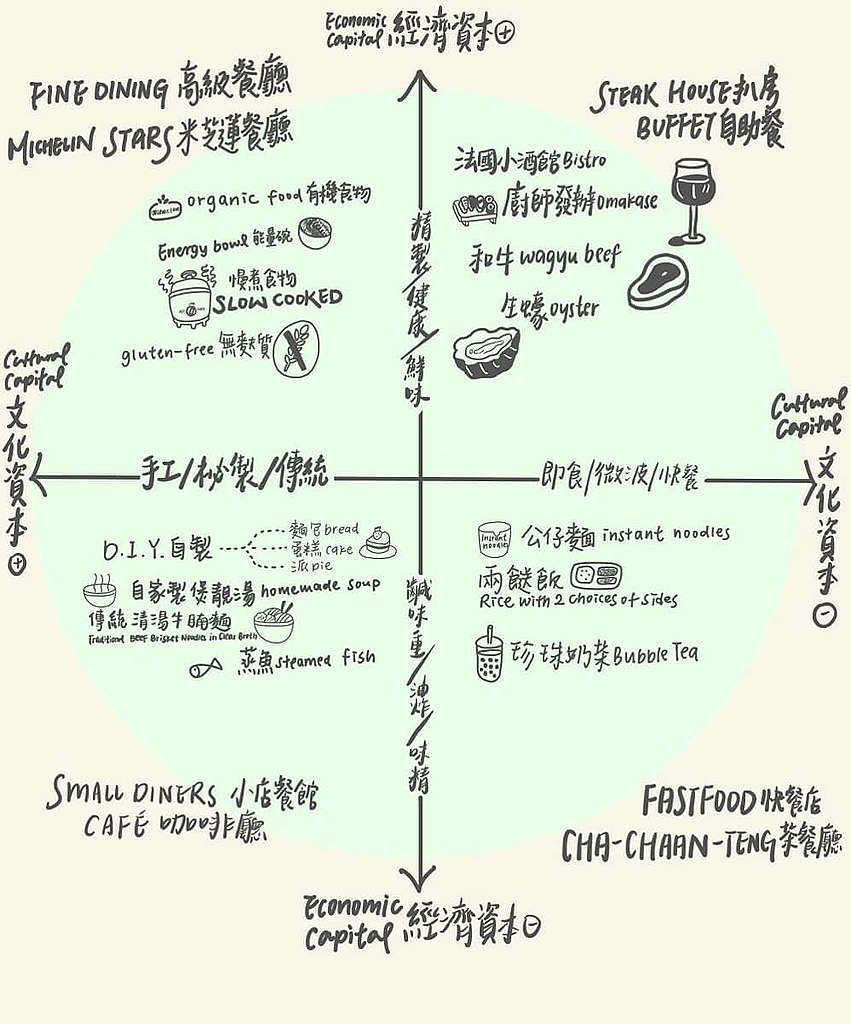 Economic Capital 經濟資本⊕
FINE DINING 高級餐廳
MICHELIN STARS 米芝蓮餐廳
STEAK HOUSE 扒房
BUFFET 自助餐
organic food 有機食物
Energy bowl 能量碗
慢煮食物
SLOW COOKED
gluten-free 無麩質
法國小酒館 Bistro
廚師發辦 omakase
和牛 wagyu beef
生蠔 oyster
精製/健康/鮮味
Cultural Capital 文化資本⊕
手工/秘製/傳統
即食/微波/快餐
Cultural Capital 文化資本⊖
D.I.Y. 自製
麵包 bread
蛋糕 cake
派 pie
自家製煲靚湯 homemade soup
傳統清湯牛腩麵
Traditional Beef Brisket Noodles in Clear Broth
蒸魚 steamed fish
instant noodles
公仔麵 instant noodles
兩餸飯
Rice with 2 choices of sides
珍珠奶茶 Bubble Tea
鹹味重/油炸/味精
SMALL DINERS 小店餐館
CAFÉ 咖啡廳
FASTFOOD 快餐店
CHA-CHAAN-TENG 茶餐廳
Economic Capital 經濟資本⊖